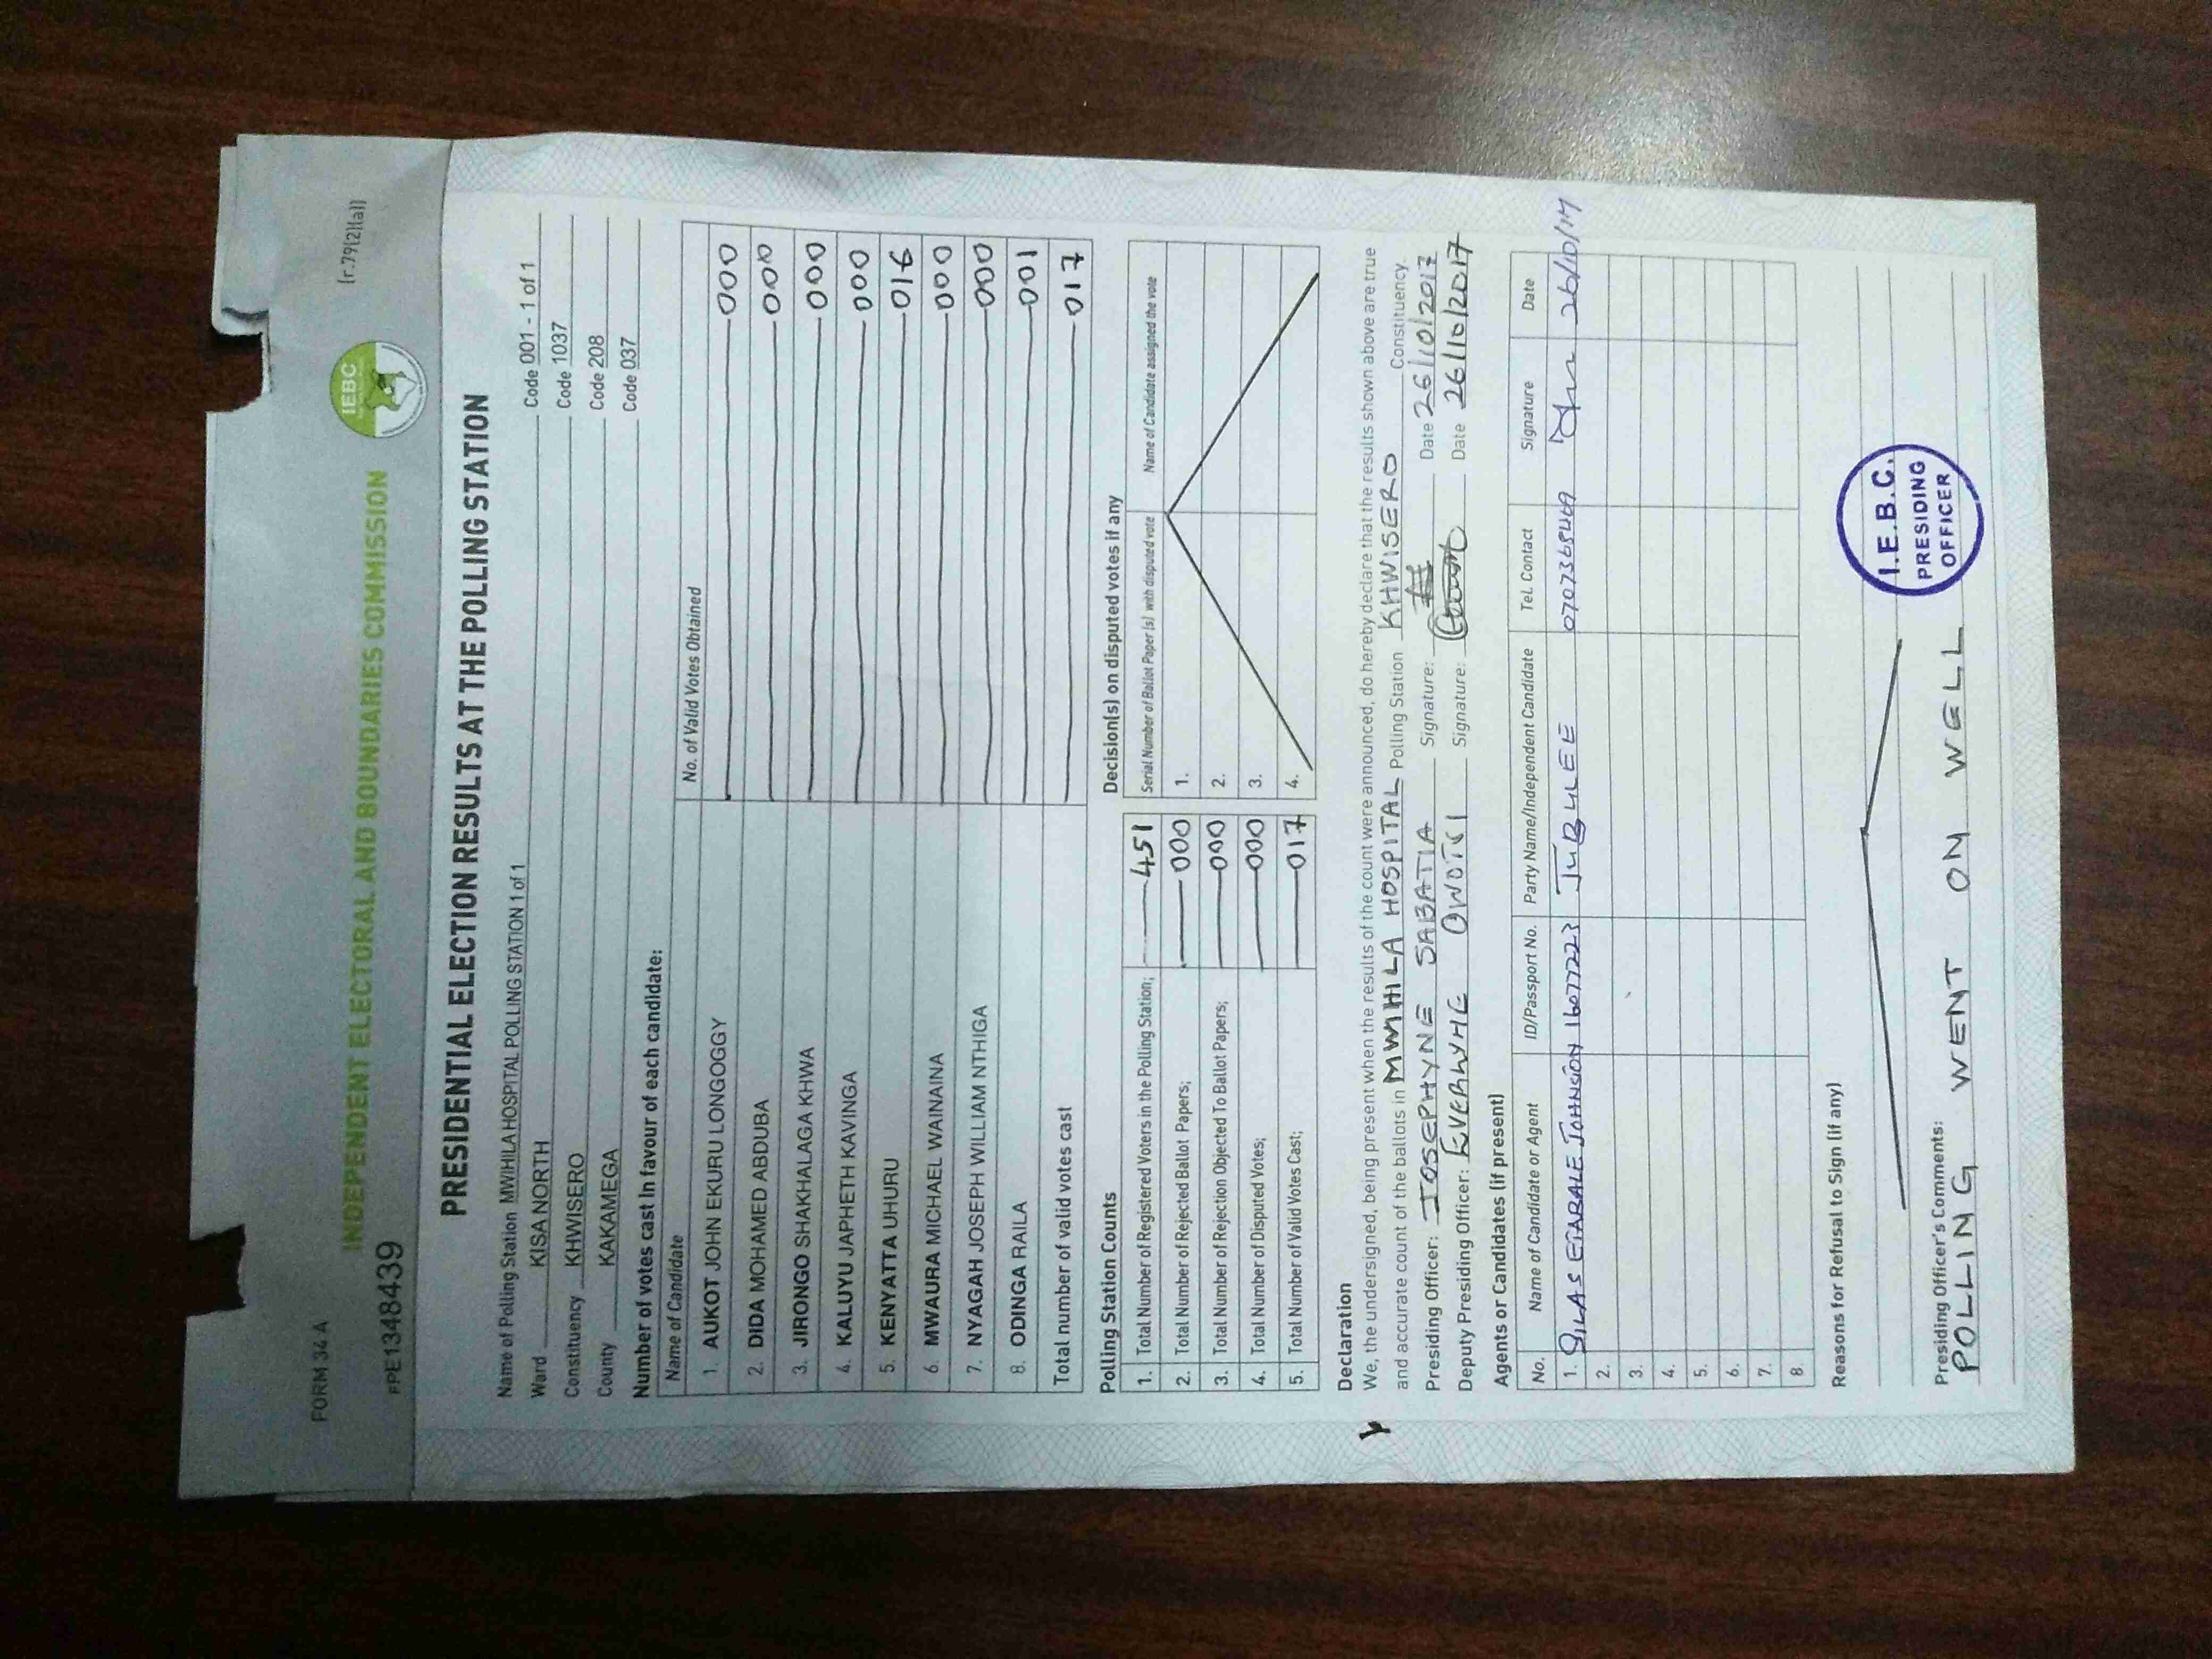 FORM 34 A
(r.79(2)(a))
INDEPENDENT ELECTORAL AND BOUNDARIES COMMISSION
IEBC
#PE1348439
PRESIDENTIAL ELECTION RESULTS AT THE POLLING STATION
Name of Polling Station MWIHILA HOSPITAL POLLING STATION 1 of 1 Code 001 - 1 of 1
Ward KISA NORTH Code 1037
Constituency KHWISERO Code 208
County KAKAMEGA Code 037
Number of votes cast In favour of each candidate:
Name of Candidate No. of Valid Votes Obtained
1. AUKOT JOHN EKURU LONGOGGY 000
2. DIDA MOHAMED ABDUBA 000
3. JIRONGO SHAKHALAGA KHWA 000
4. KALUYU JAPHETH KAVINGA 000
5. KENYATTA UHURU 016
6. MWAURA MICHAEL WAINAINA 000
7. NYAGAH JOSEPH WILLIAM NTHIGA 000
8. ODINGA RAILA 001
Total number of valid votes cast 017
Polling Station Counts
1. Total Number of Registered Voters in the Polling Station; 451
2. Total Number of Rejected Ballot Papers; 000
3. Total Number of Rejection Objected To Ballot Papers; 000
4. Total Number of Disputed Votes; 000
5. Total Number of Valid Votes Cast; 017
Decision(s) on disputed votes if any
Serial Number of Ballot Paper(s) with disputed vote Name of Candidate assigned the vote
1.
2.
3.
4.
Declaration
We, the undersigned, being present when the results of the count were announced, do hereby declare that the results shown above are true
and accurate count of the ballots in MWIHILA HOSPITAL Polling Station KHWISERO Constituency.
Presiding Officer: JOSEPHYNE SABATIA Signature: Date 26/10/2017
Deputy Presiding Officer: Signature: Date 26/10/2017
Agents or Candidates (if present)
No. Name of Candidate or Agent ID/Passport No. Party Name/Independent Candidate Tel. Contact Signature Date
1. SILAS JOHNSON 16077223 JUBILEE 26/10/17
2.
3.
4.
5.
6.
7.
8.
Reasons for Refusal to Sign (if any)
Presiding Officer's Comments:
POLLING WENT ON WELL
I.E.B.C.
PRESIDING
OFFICER